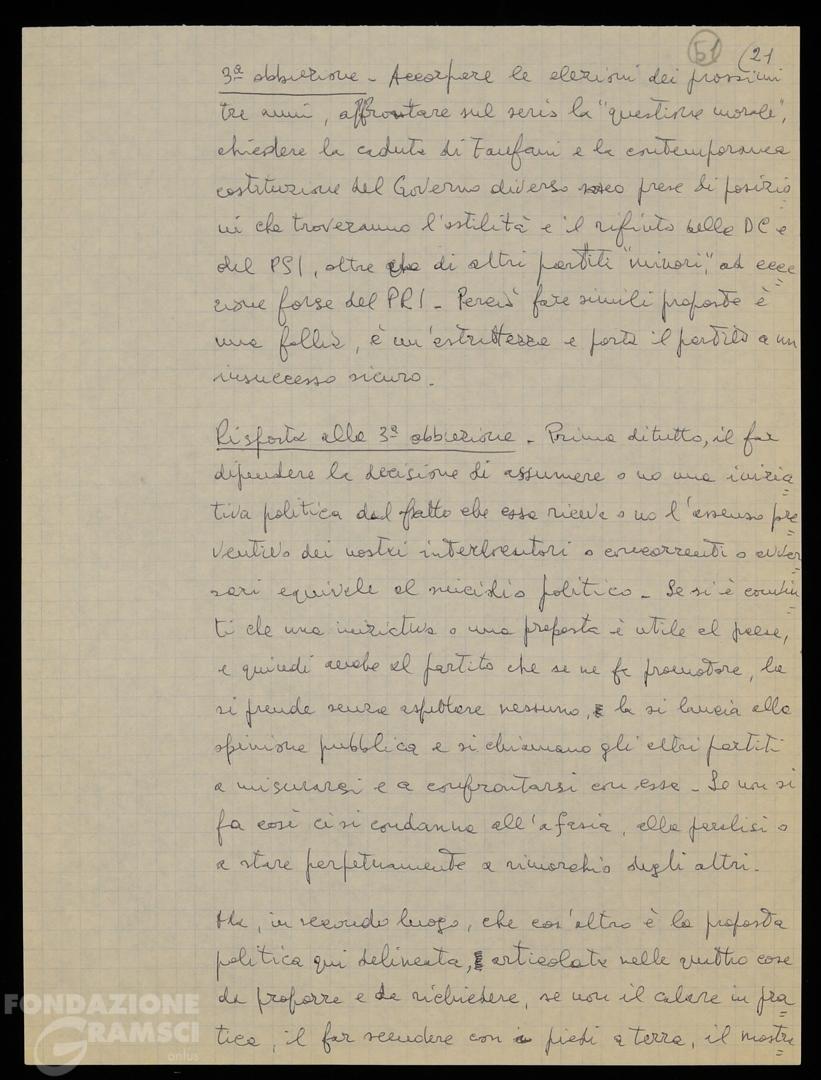 51 (21
3ª obbiezione - Accorpare le elezioni dei prossimi
tre anni, affrontare sul serio la "questione morale",
chiedere la caduta di Fanfani e la contemporanea
costituzione del Governo diverso sono prese di posizio=
ni che troveranno l'ostilità e il rifiuto della DC e
del PSI, oltre che di altri partiti "minori", ad ecce=
zione forse del PRI - Perciò fare simili proposte è
una follia, è un'astrattezza e porta il partito a un
insuccesso sicuro.
Risposta alla 3ª obbiezione - Prima di tutto, il far
dipendere la decisione di assumere o no una inizia=
tiva politica dal fatto che essa riceva o no l'assenso pre=
ventivo dei nostri interlocutori o concorrenti o avver=
sari equivale al suicidio politico - Se si è convin=
ti che una iniziativa o una proposta è utile al paese,
e quindi anche al partito che se ne fa promotore, la
si prende senza aspettare nessuno, la si lancia alla
opinione pubblica e si chiamano gli altri partiti
a misurarsi e a confrontarsi con essa - Se non si
fa così ci si condanna all'afasia, alla paralisi o
a stare perpetuamente a rimorchio degli altri.
Ma, in secondo luogo, che cos'altro è la proposta
politica qui delineata, articolata nelle quattro cose
da proporre e da richiedere, se non il calare in pra=
tica, il far scendere con i piedi a terra, il mostra
FONDAZIONE
GRAMSCI
onlus